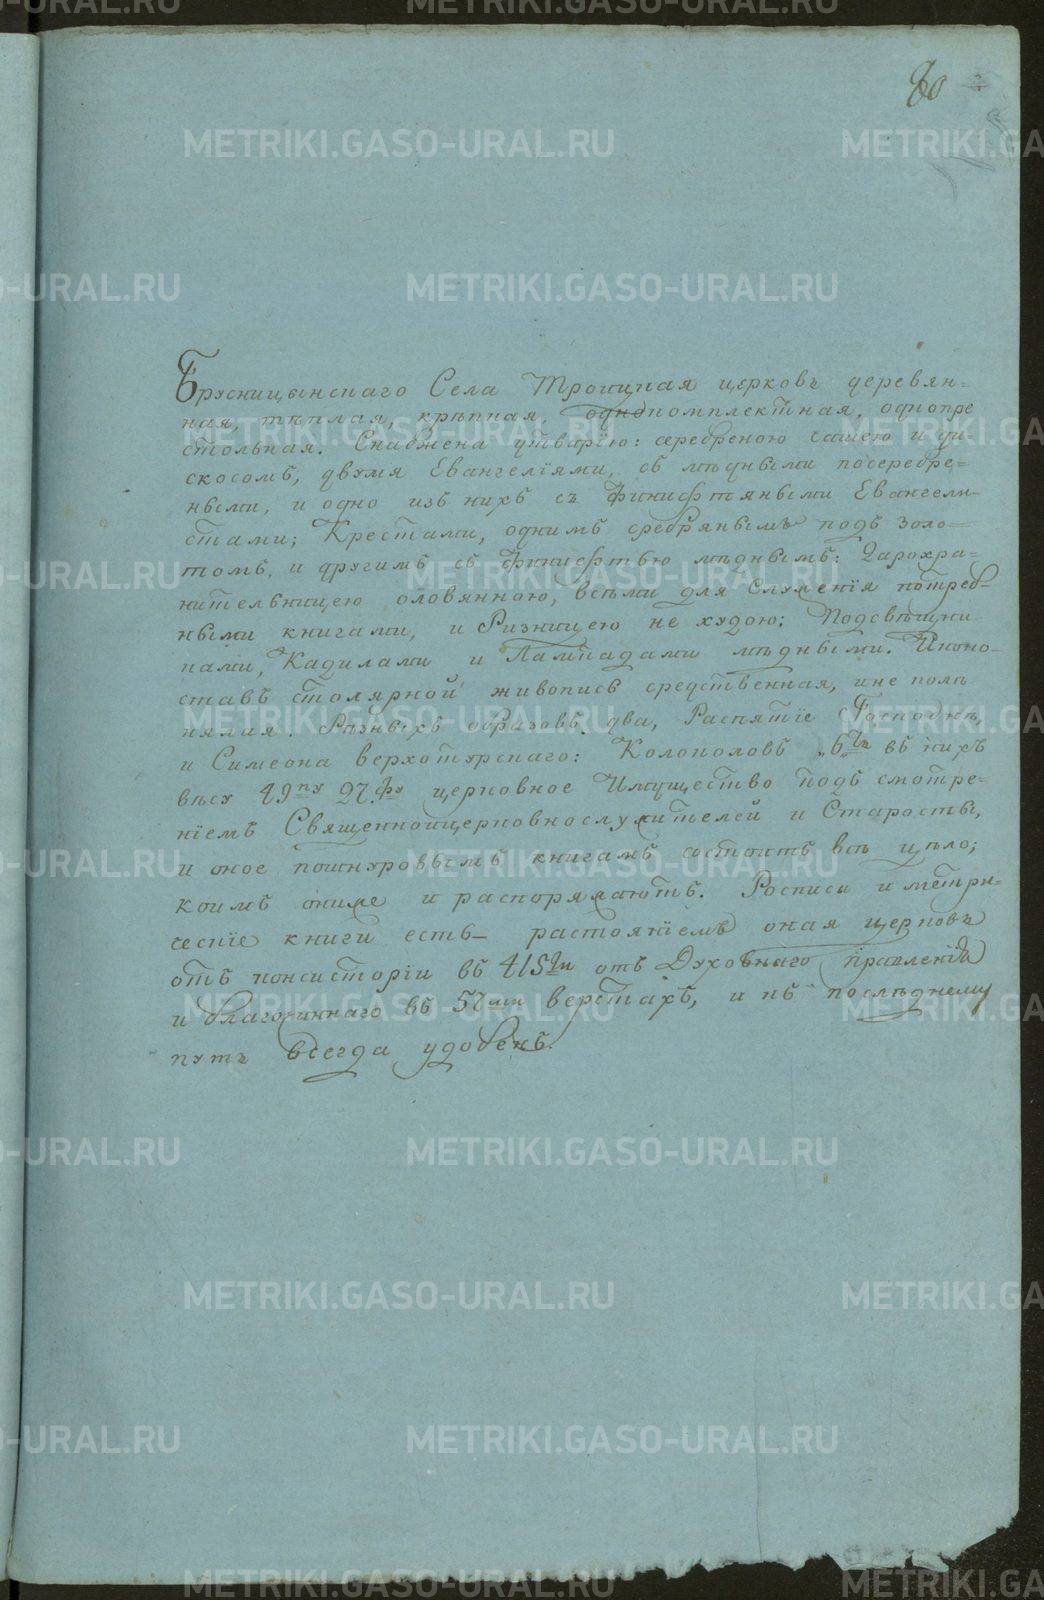 80
Брусницынскаго Села Троицкая церковь деревян=
ная, тѣплая, крѣпкая, однокомплектная, однопре
стольная. Снабжена утварью: серебреною чашею и ди-
скосомъ, двумя Евангеліями, съ мѣдными посеребре=
ными, и одно изъ нихъ съ Финифтяными Евангели-
стами; Крестами, однимъ сребрянымъ подъ золо=
томъ, и другимъ съ Финифтью мѣднымъ: Дарохра=
нительницею оловянною, всѣми для служенія потреб-
ными книгами, и Ризницею не худою: Подсвѣщни
ками, Кадилами и Лампадами мѣдными. Иконо-
ставъ столярной живопись средственная, и не поли
нялая. Разныхъ образовъ два, Распятіе Господне,
и Симеона верхотурскаго: Колоколовъ „6ть въ нихъ
вѣсу 49пу 27.фу церковное Имущество подъ смотре=
ніемъ Священноицерковнослужителей и Старосты,
и оное пошнуровымъ книгамъ состоитъ всѣ цѣло;
коимъ ониже и распоряжаютъ. Росписи и метри=
ческіе книги есть_ растояніемъ оная церковь
отъ консисторіи въ 415ти отъ Духовнаго правленія
и благочиннаго въ 57ми верстахъ, и къ послѣднему
путь всегда удобенъ.
METRIKI.GASO-URAL.RU